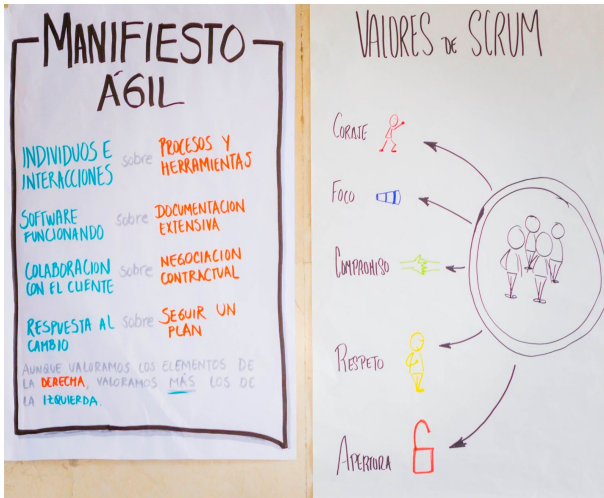 MANIFIESTO
ÁGIL
INDIVIDUOS E
INTERACCIONES
sobre
PROCESOS Y
HERRAMIENTAS
SOFTWARE
FUNCIONANDO
sobre
DOCUMENTACION
EXTENSIVA
COLABORACION
CON EL CLIENTE
sobre
NEGOCIACION
CONTRACTUAL
RESPUESTA AL
CAMBIO
sobre
SEGUIR UN
PLAN
AUNQUE VALORAMOS LOS ELEMENTOS DE
LA DERECHA, VALORAMOS MÁS LOS DE
LA IZQUIERDA.
VALORES DE SCRUM
CORAJE
FOCO
COMPROMISO
RESPETO
APERTURA